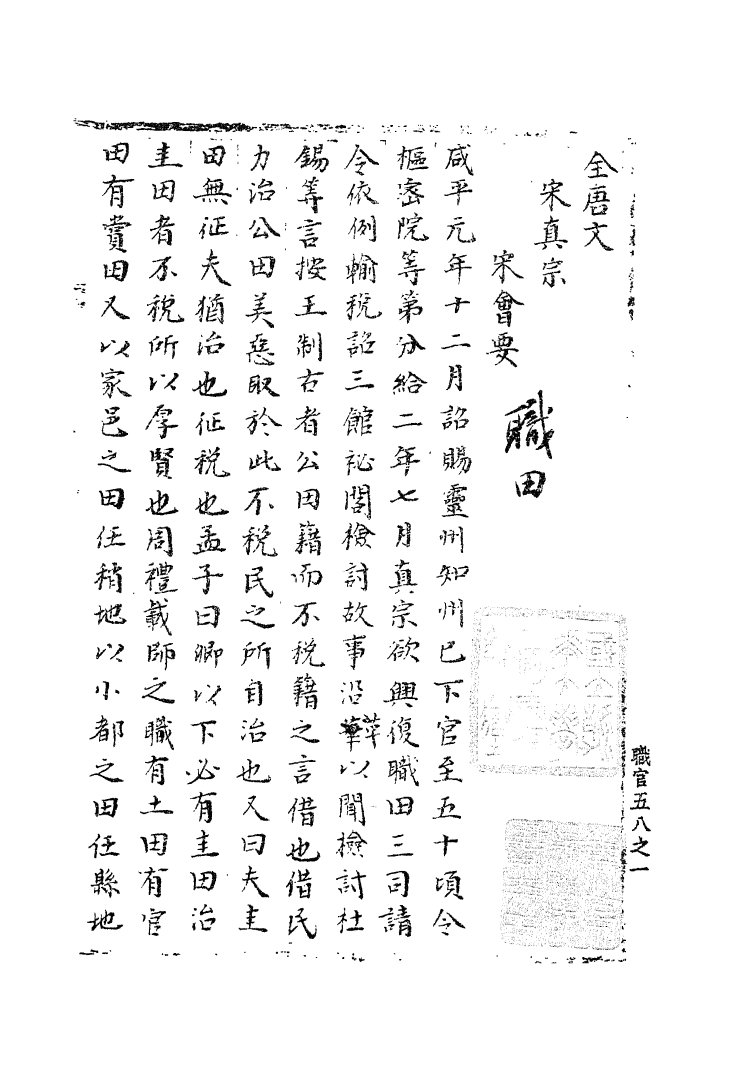 全唐文
宋真宗
宋會要
職田
咸平元年十二月詔賜靈州知州已下官至五十頃令
樞密院等第分給二年七月真宗欲興復職田三司請
令依例輸稅詔三館祕閣檢討故事沿革以聞檢討杜
錫等言按王制古者公田籍而不稅籍之言借也借民
力治公田美惡取於此不稅民之所自治也又曰夫圭
田無征夫猶治也征稅也孟子曰卿以下必有圭田治
圭田者不稅所以厚賢也周禮載師之職有士田有官
田有賞田又以家邑之田任稍地以小都之田任縣地
職官五八之一